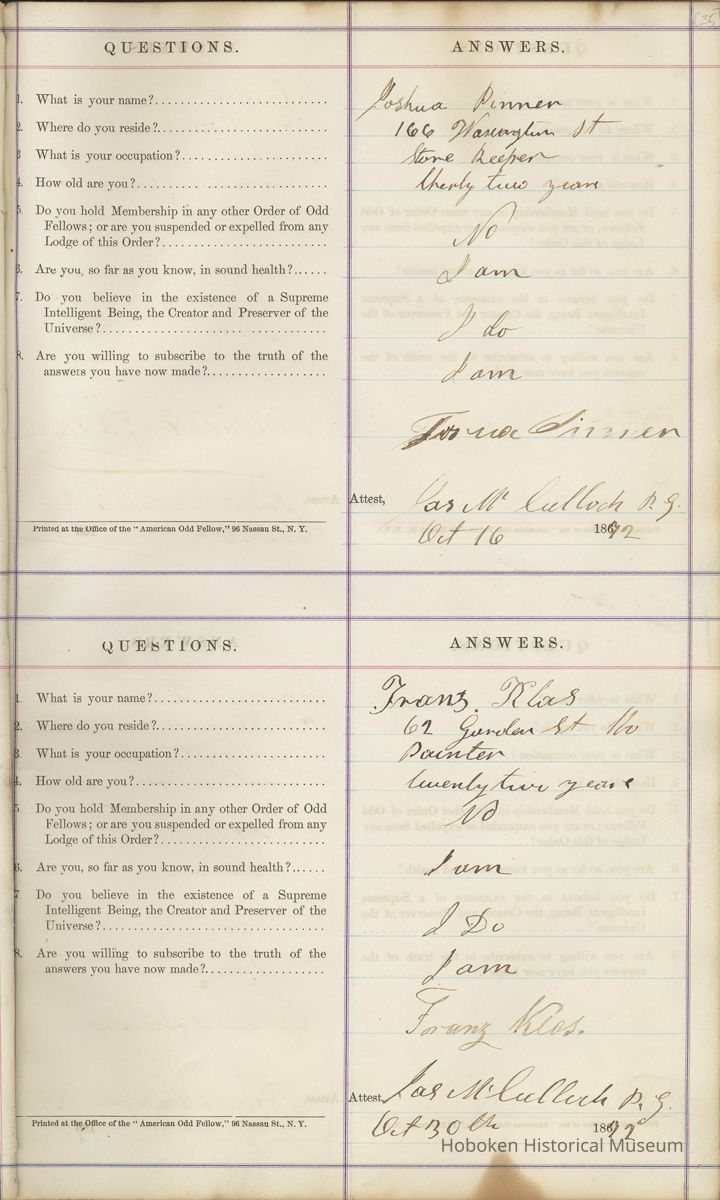 135
QUESTIONS. ANSWERS.
1. What is your name?........................... Joshua Pinner
2. Where do you reside?.......................... 166 Wasington St
3 What is your occupation?....................... Store Keeper
4. How old are you?.............................. therty two years
5. Do you hold Membership in any other Order of Odd
Fellows; or are you suspended or expelled from any
Lodge of this Order?.......................... No
6. Are you, so far as you know, in sound health?...... I am
7. Do you believe in the existence of a Supreme
Intelligent Being, the Creator and Preserver of the
Universe?.................................... I do
8. Are you willing to subscribe to the truth of the
answers you have now made?................... I am
Pinner
Attest, Jas Mc Culloch P. G.
Printed at the Office of the "American Odd Fellow," 96 Nassau St., N. Y.
Oct 16 1872
QUESTIONS. ANSWERS.
1. What is your name?........................... Franz. Klas
2. Where do you reside?.......................... 62 Garden St Ho
3. What is your occupation?....................... Painter
4. How old are you?.............................. twenty two years
5. Do you hold Membership in any other Order of Odd
Fellows; or are you suspended or expelled from any
Lodge of this Order?.......................... No
6. Are you, so far as you know, in sound health?...... I am
7. Do you believe in the existence of a Supreme
Intelligent Being, the Creator and Preserver of the
Universe?.................................... I Do
8. Are you willing to subscribe to the truth of the
answers you have now made?................... I am
Franz Klas.
Attest, Jas Mc Culloch P. G.
Printed at the Office of the "American Odd Fellow," 96 Nassau St., N. Y.
Oct 30th 1872
Hoboken Historical Museum